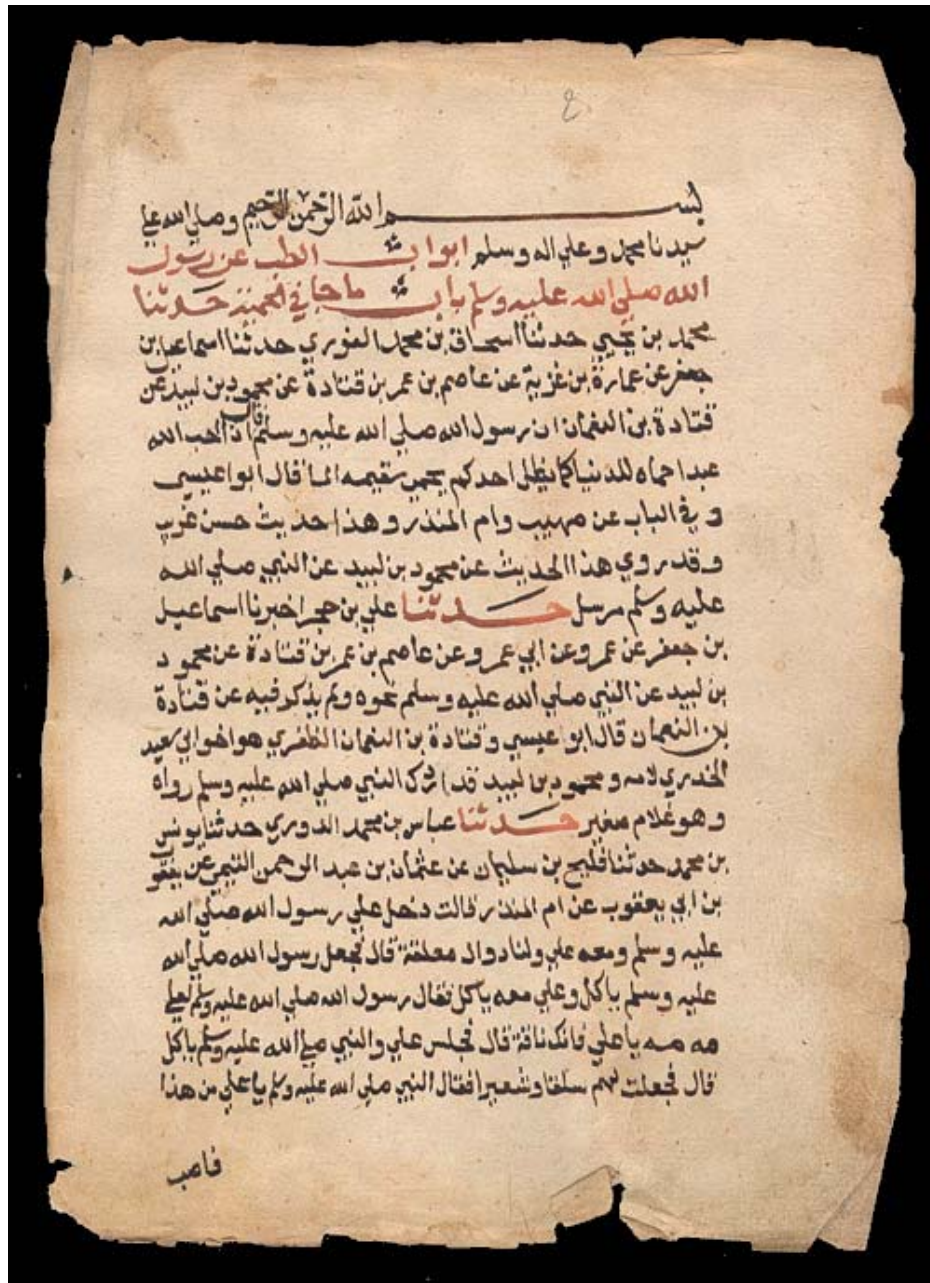 بسم الله الرحمن الرحيم وصلي الله علي
سيدنا محمد وعلي اله وسلم ابواب الطب عن رسول
الله صلي الله عليه وسلم باب ما جا في الحمية حدثنا
محمد بن يحيي حدثنا اسحاق بن محمد الفوري حدثنا اسماعيل بن
جعفر عن عمارة بن غزية عن عاصم بن عمر بن قتادة عن محمود بن لبيد عن
قتادة بن النعمان ان رسول الله صلي الله عليه وسلم قال اذا احب الله
عبدا حماه للدنيا كما يظل احدكم يحمي سقيمه الما قال ابو عيسي
وفي الباب عن صهيب وام المنذر وهذا حديث حسن غريب
وقد روي هذا الحديث عن محمود بن لبيد عن النبي صلي الله
عليه وسلم مرسل حدثنا علي بن حجر اخبرنا اسماعيل
بن جعفر عن عمرو عن ابي عمرو عن عاصم بن عمر بن قتادة عن محمود
بن لبيد عن النبي صلي الله عليه وسلم نحوه ولم يذكر فيه عن قتادة
بن النعمان قال ابو عيسي وقتادة بن النعمان الظفري هو اخو ابي سعيد
الخدري لامه ومحمود بن لبيد قد ادرك النبي صلي الله عليه وسلم رواه
وهو غلام صغير حدثنا عباس بن محمد الدوري حدثنا يونس
بن محمد حدثنا فليح بن سليمان عن عثمان بن عبد الرحمن التيمي عن يعقوب
بن ابي يعقوب عن ام المنذر قالت دخل علي رسول الله صلي الله
عليه وسلم ومعه علي ولنا دوال معلقة قال فجعل رسول الله صلي الله
عليه وسلم ياكل وعلي معه ياكل فقال رسول الله صلي الله عليه وسلم لعلي
مه مه يا علي فانك ناقة قال فجلس علي والنبي صلي الله عليه وسلم ياكل
قال فجعلت لهم سلقا وشعيرا فقال النبي صلي الله عليه وسلم يا علي من هذا
فاصب